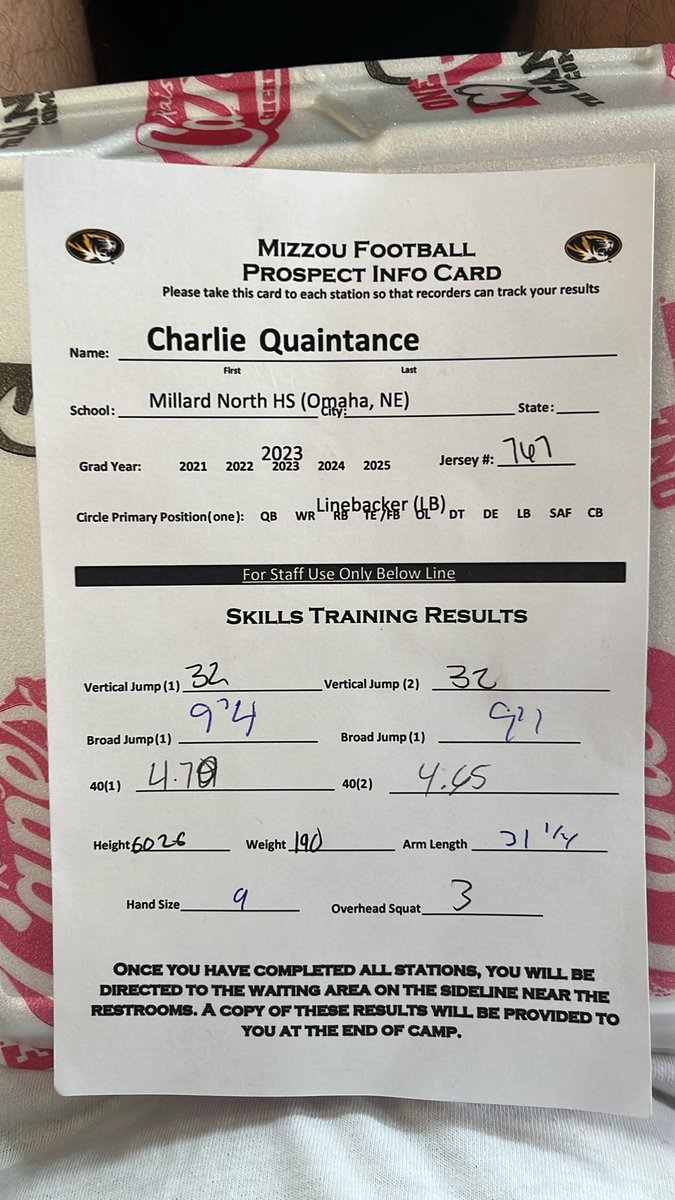 Mizzou Football
Prospect Info Card
Please take this card to each station so that recorders can track your results
Name: Charlie Quaintance
First Last
School: Millard North HS (Omaha, NE) City: State:
2023
Grad Year: 2021 2022 2023 2024 2025 Jersey #: 767
Linebacker (LB)
Circle Primary Position(one): QB WR RB TE/FB OL DT DE LB SAF CB
For Staff Use Only Below Line
Skills Training Results
Vertical Jump (1) 32 Vertical Jump (2) 32
Broad Jump(1) 9'4 Broad Jump (1) 9'
40(1) 4.70 40(2) 4.65
Height 6026 Weight 190 Arm Length 31 1/4
Hand Size 9 Overhead Squat 3
Once you have completed all stations, you will be
directed to the waiting area on the sideline near the
restrooms. A copy of these results will be provided to
you at the end of camp.